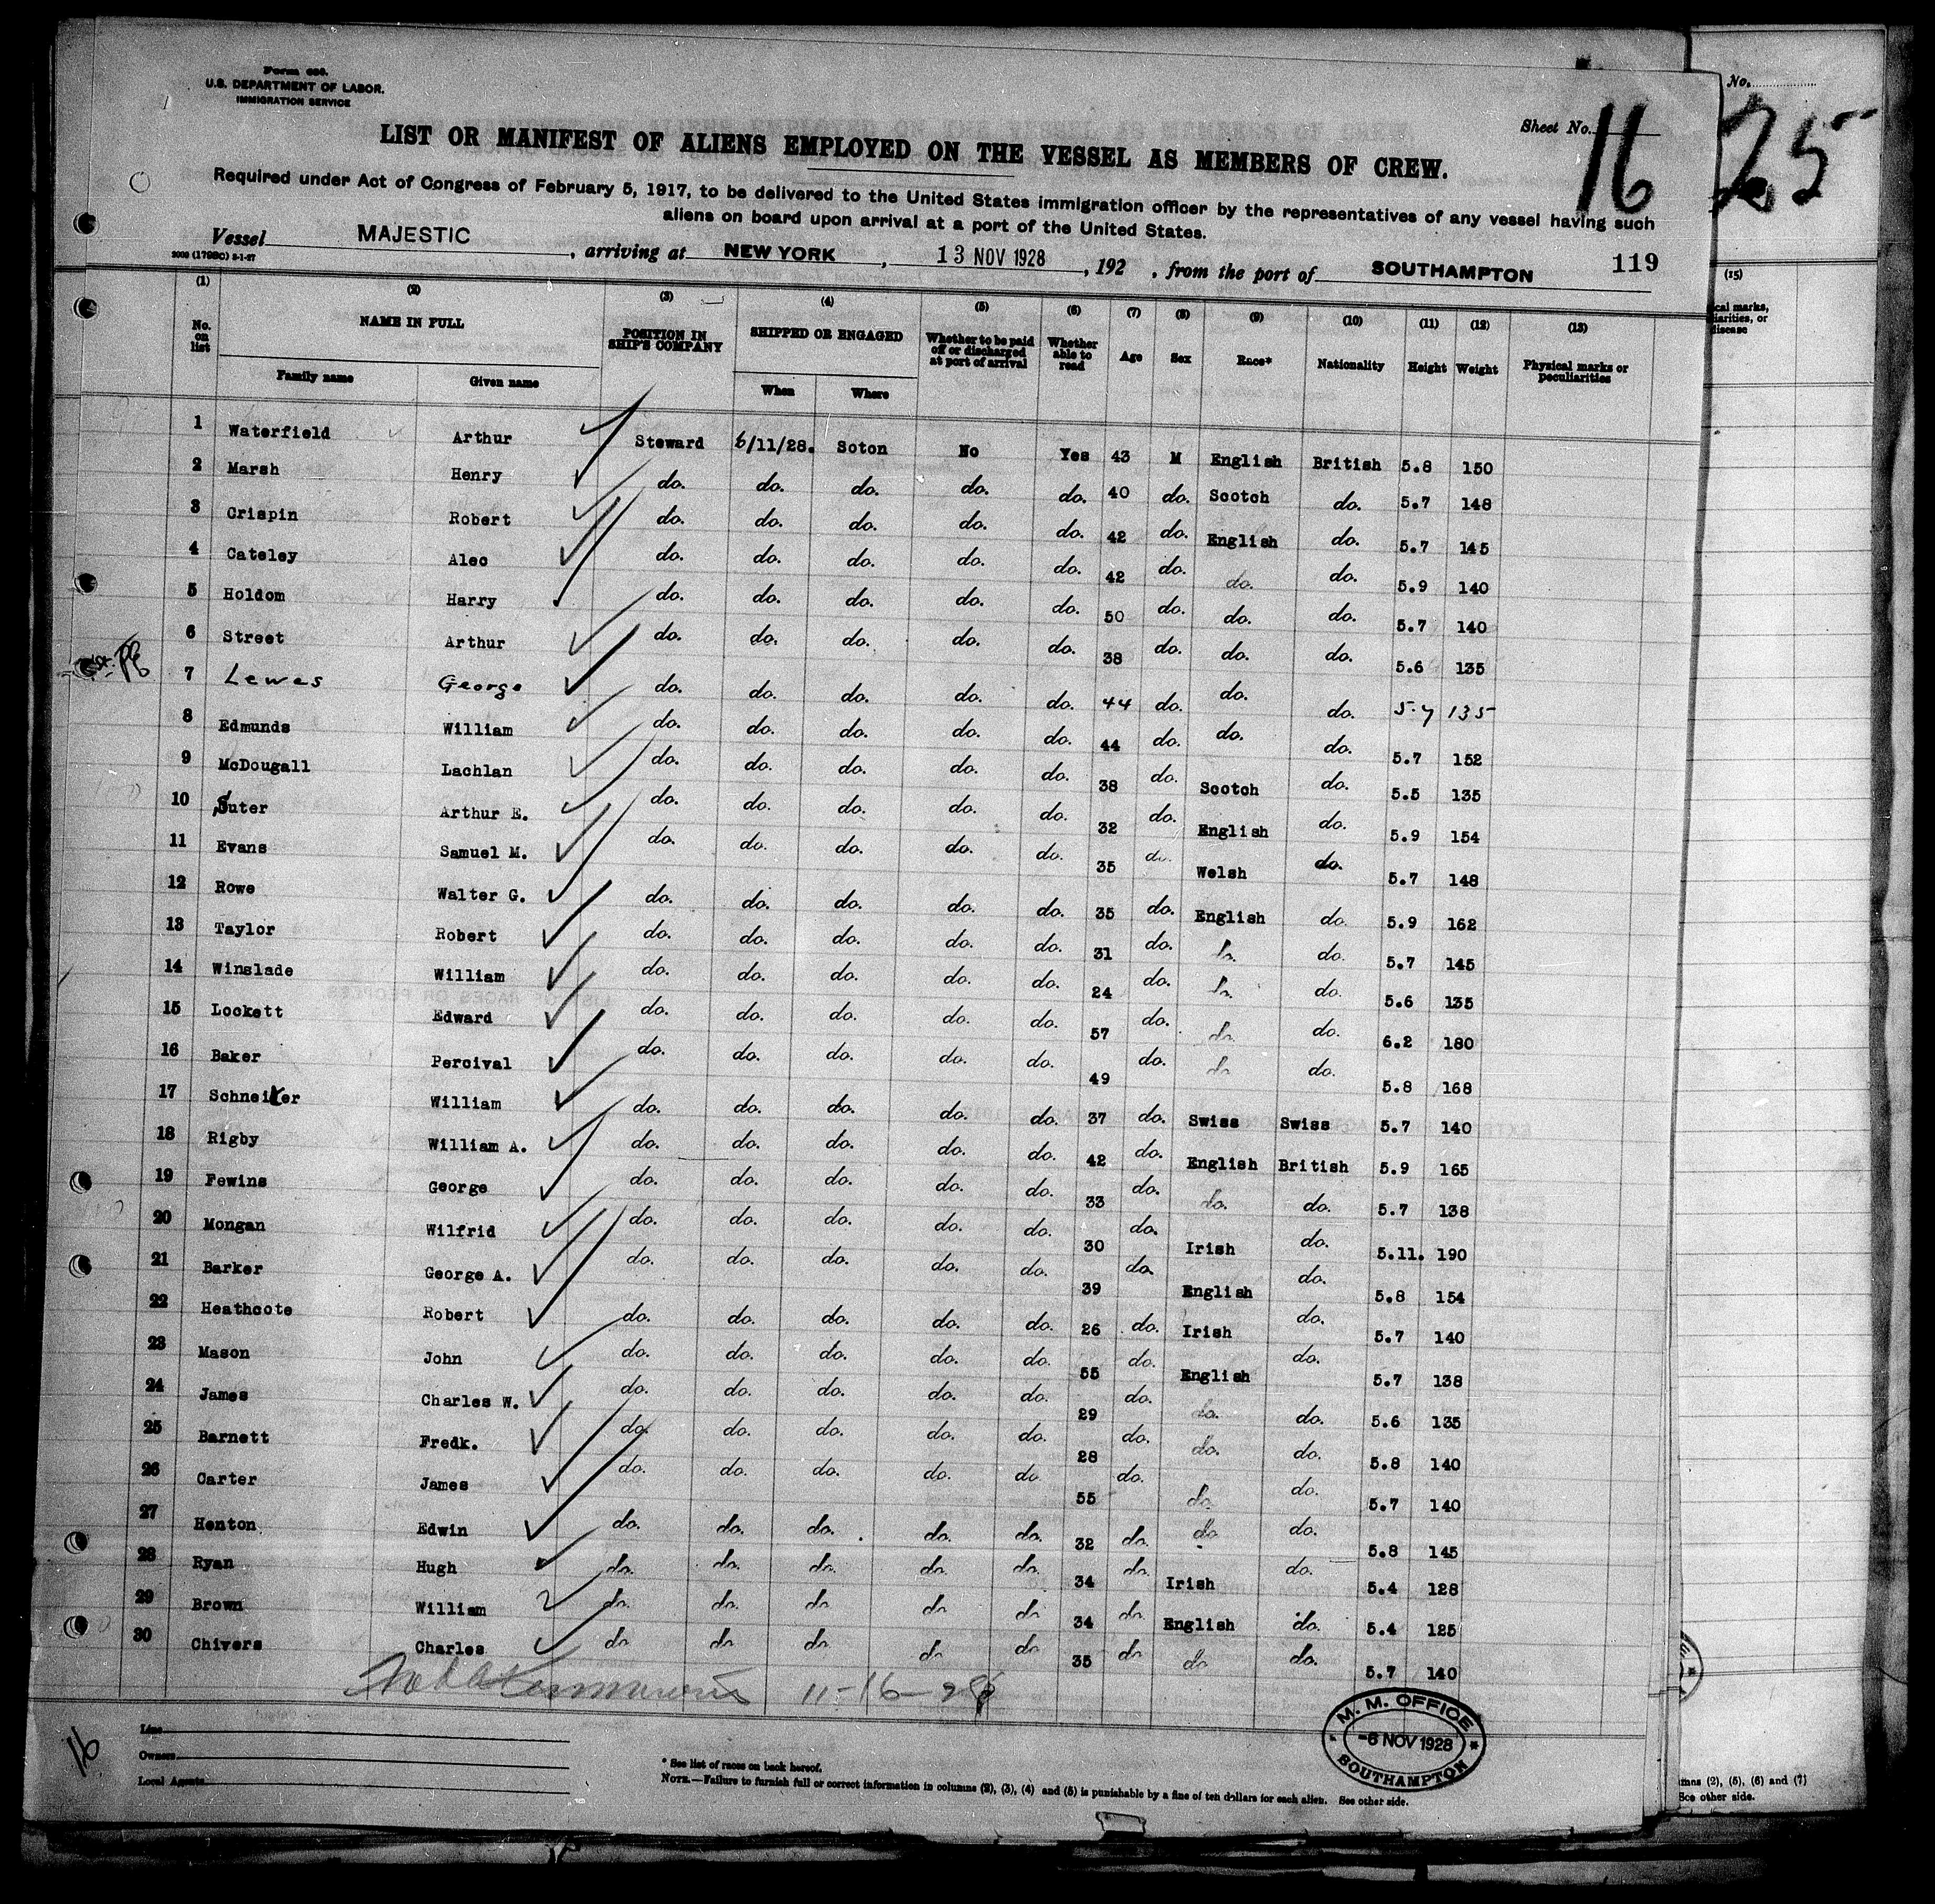 Form 680.
U.S. DEPARTMENT OF LABOR.
IMMIGRATION SERVICE
Sheet No. 16
No. 25
LIST OR MANIFEST OF ALIENS EMPLOYED ON THE VESSEL AS MEMBERS OF CREW.
Required under Act of Congress of February 5, 1917, to be delivered to the United States immigration officer by the representatives of any vessel having such
aliens on board upon arrival at a port of the United States.
Vessel MAJESTIC, arriving at NEW YORK, 13 NOV 1928, 192 , from the port of SOUTHAMPTON 119
(1) (2) (3) (4) (5) (6) (7) (8) (9) (10) (11) (12) (13) (15)
No. on list NAME IN FULL Family name Given name POSITION IN SHIP'S COMPANY SHIPPED OR ENGAGED When Where Whether to be paid off or discharged at port of arrival Whether able to read Age Sex Race* Nationality Height Weight Physical marks or peculiarities
1 Waterfield Arthur Steward 6/11/28. Soton No Yes 43 M English British 5.8 150
2 Marsh Henry do. do. do. do. do. 40 do. Scotch do. 5.7 148
3 Crispin Robert do. do. do. do. do. 42 do. English do. 5.7 145
4 Cateley Alec do. do. do. do. do. 42 do. do. do. 5.9 140
5 Holdom Harry do. do. do. do. do. 50 do. do. do. 5.7 140
6 Street Arthur do. do. do. do. do. 38 do. do. do. 5.6 135
7 Lewes George do. do. do. do. do. 44 do. do. do. 5.7 135
8 Edmunds William do. do. do. do. do. 44 do. do. do. 5.7 152
9 McDougall Lachlan do. do. do. do. do. 38 do. Scotch do. 5.5 135
10 Suter Arthur E. do. do. do. do. do. 32 do. English do. 5.9 154
11 Evans Samuel M. do. do. do. do. do. 35 do. Welsh do. 5.7 148
12 Rowe Walter G. do. do. do. do. do. 35 do. English do. 5.9 162
13 Taylor Robert do. do. do. do. do. 31 do. do. do. 5.7 145
14 Winslade William do. do. do. do. do. 24 do. do. do. 5.6 135
15 Lockett Edward do. do. do. do. do. 57 do. do. do. 6.2 180
16 Baker Percival do. do. do. do. do. 49 do. do do. 5.8 168
17 Schneiter William do. do. do. do. do. 37 do. Swiss Swiss 5.7 140
18 Rigby William A. do. do. do. do. do. 42 do. English British 5.9 165
19 Fewins George do. do. do. do. do. 33 do. do. do. 5.7 138
20 Mongan Wilfrid do. do. do. do. do. 30 do. Irish do. 5.11. 190
21 Barker George A. do. do. do. do. do. 39 do. English do. 5.8 154
22 Heathcote Robert do. do. do. do. do. 26 do. Irish do. 5.7 140
23 Mason John do. do. do. do. do. 55 do. English do. 5.7 138
24 James Charles W. do. do. do. do. do. 29 do. do. do. 5.6 135
25 Barnett Fredk. do. do. do. do. do. 28 do. do. do. 5.8 140
26 Carter James do. do. do. do. do 55 do. do. do. 5.7 140
27 Henton Edwin do. do. do. do. do. 32 do. do do. 5.8 145
28 Ryan Hugh do. do. do. do. do. 34 do. Irish do. 5.4 128
29 Brown William do. do. do do do 34 do. English do. 5.4 125
30 Chivers Charles do do do do do 35 do do do. 5.7 140
11-16-28
16
Line
Owners
Local Agents
* See list of races on back hereof.
NOTE.—Failure to furnish full or correct information in columns (2), (3), (4) and (5) is punishable by a fine of ten dollars for each alien. See other side.
M. M. OFFICE
-6 NOV 1928
SOUTHAMPTON
(2), (5), (6) and (7)
See other side.